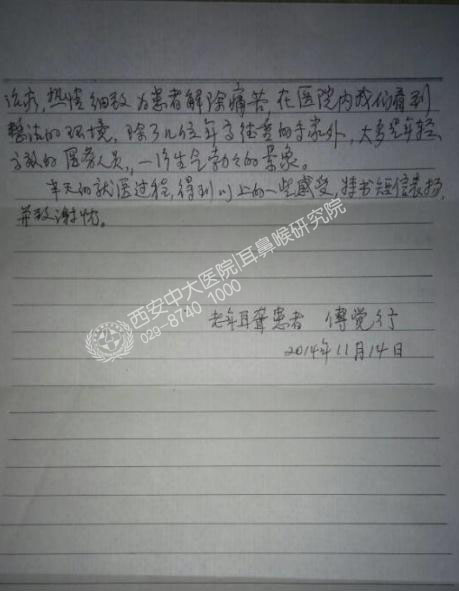 热情细致为患者解除痛苦 在医院内我们看到
整洁的环境，除了几位年高德重的专家外，大多是年轻
有效的医务人员，一派生气勃々的景象。
半天的就医过程，得到以上的一些感受，特书短信表扬，
并致谢忱。
西安中大医院|耳鼻喉研究院
029-8740 1000
老年耳聋患者 傅觉行
2014年11月14日